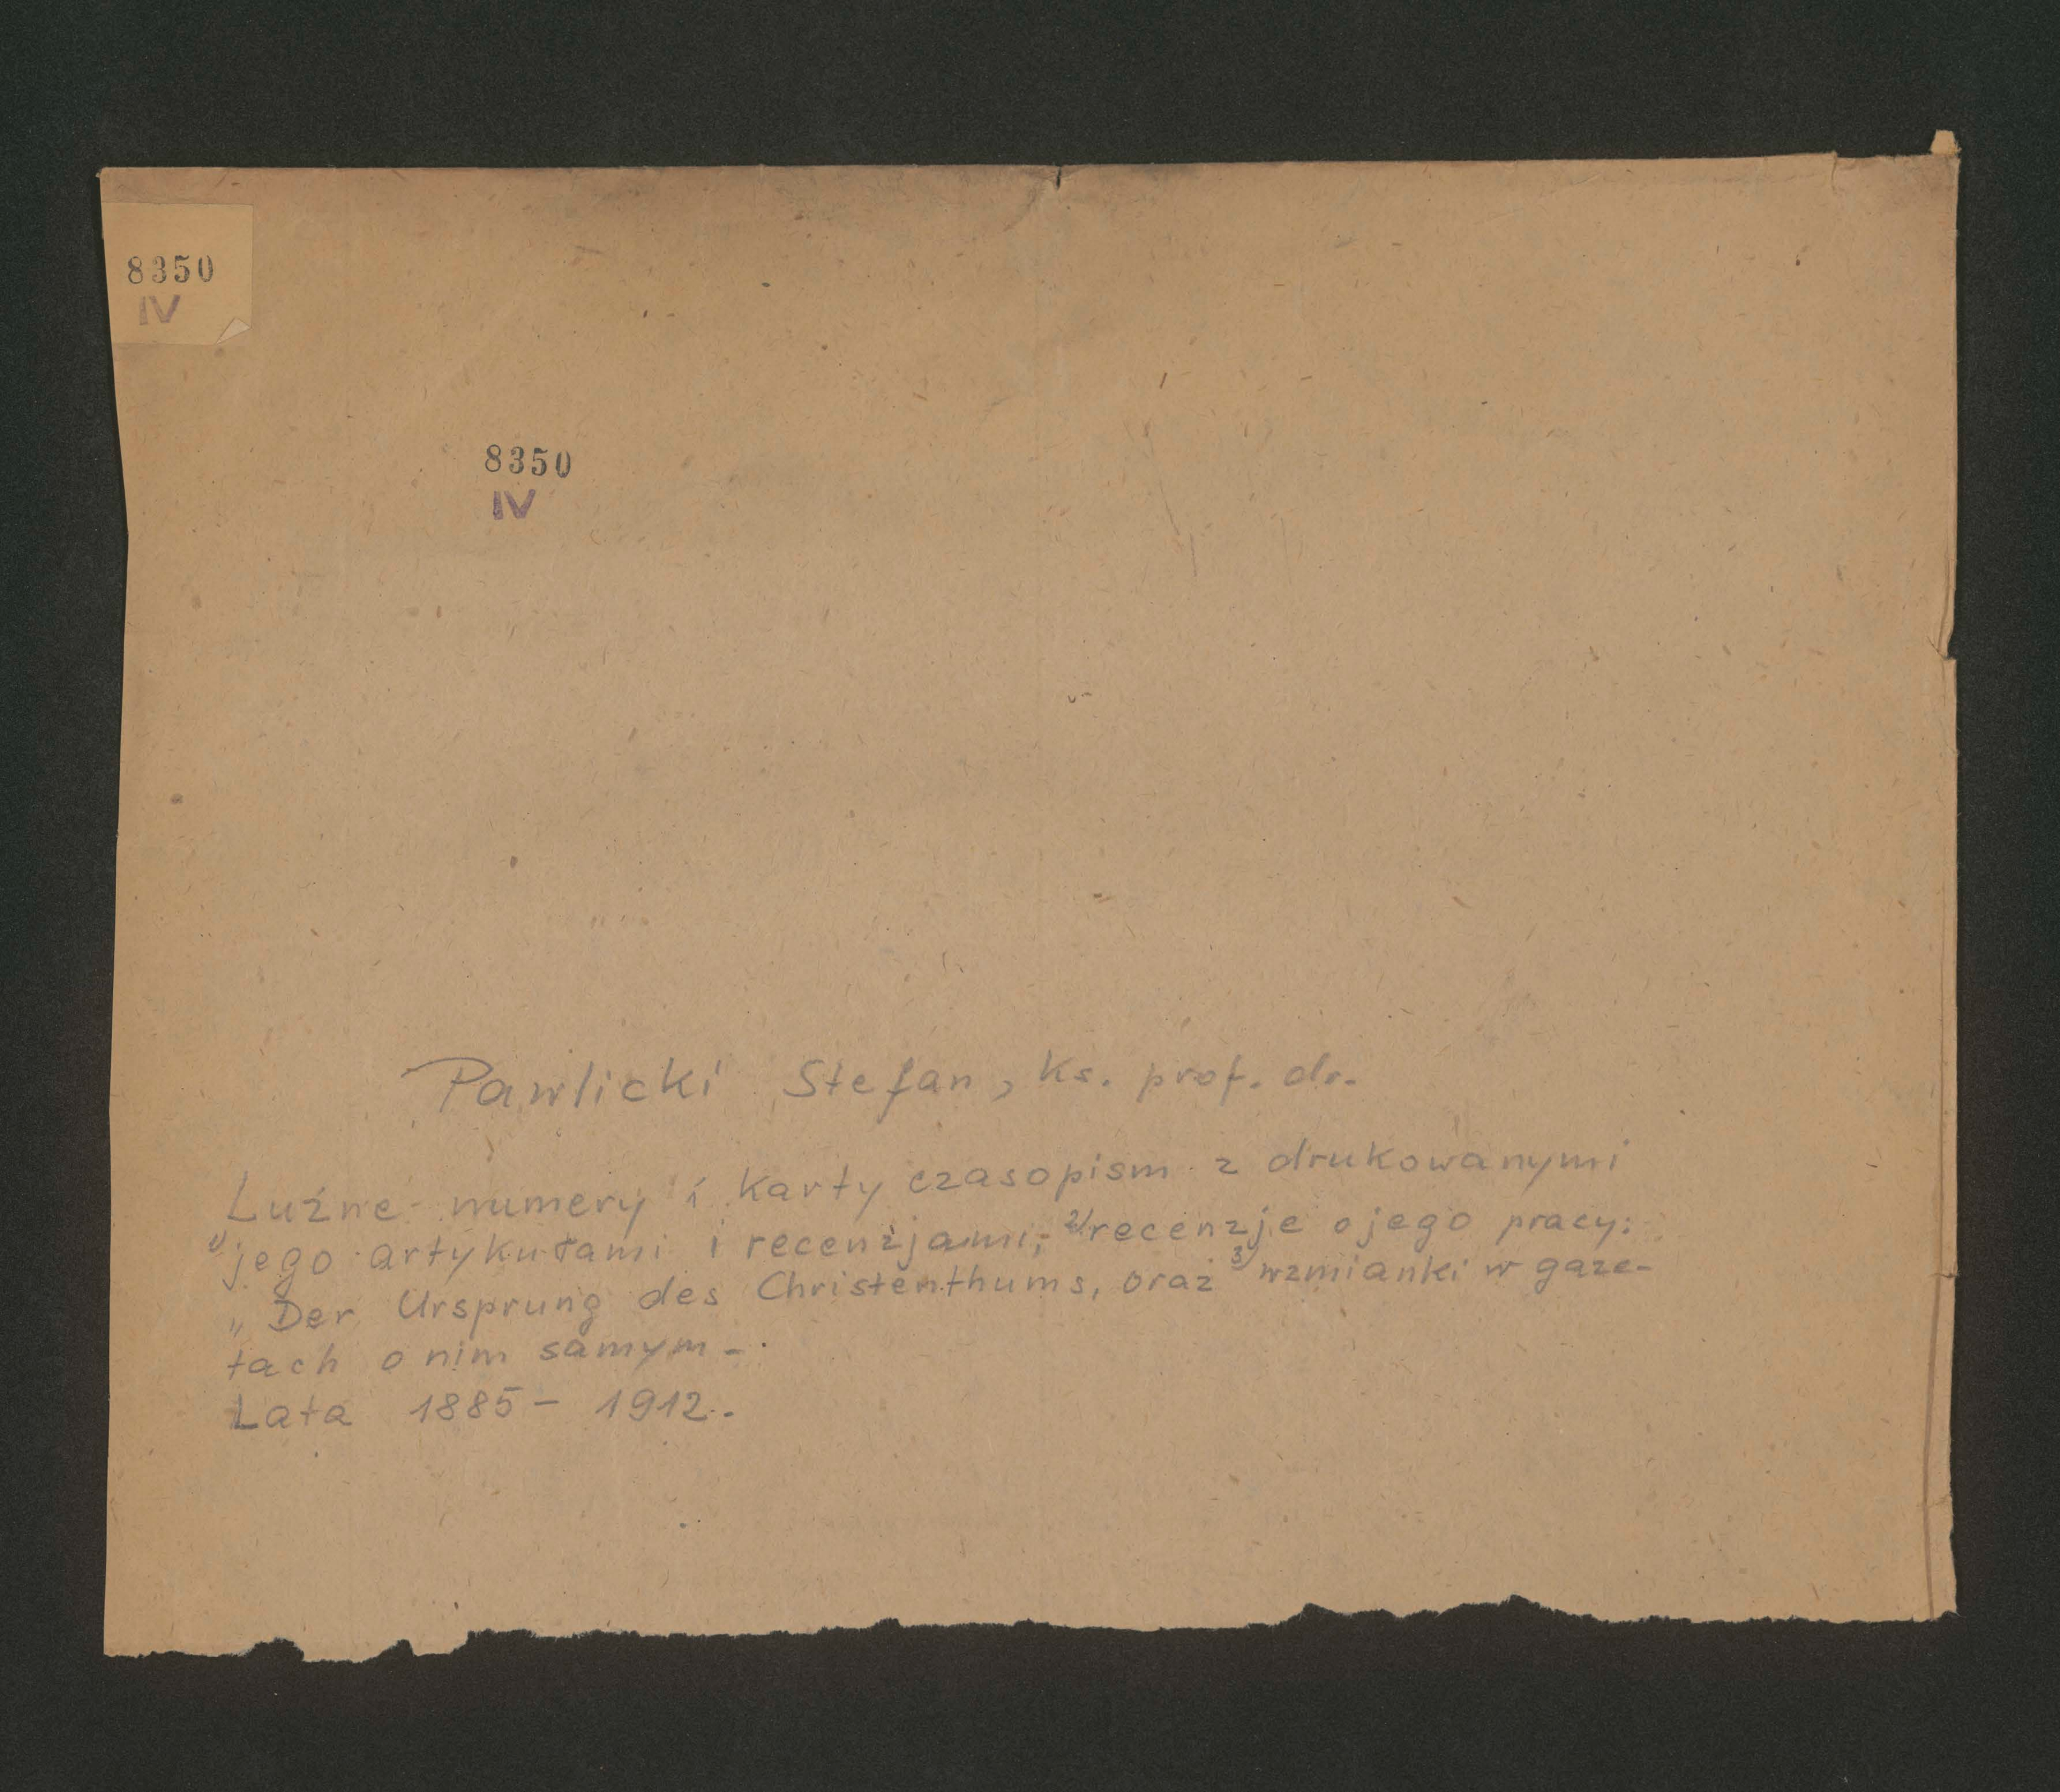 8350
IV
8350
IV
Pawlicki Stefan, ks. prof. dr.
Luźne numery i karty czasopism z drukowanymi
1) jego artykułami i recenzjami; 2) recenzje o jego pracy:
„Der Ursprung des Christenthums, oraz 3) wzmianki w gaze-
tach o nim samym -.
Lata 1885 - 1912.